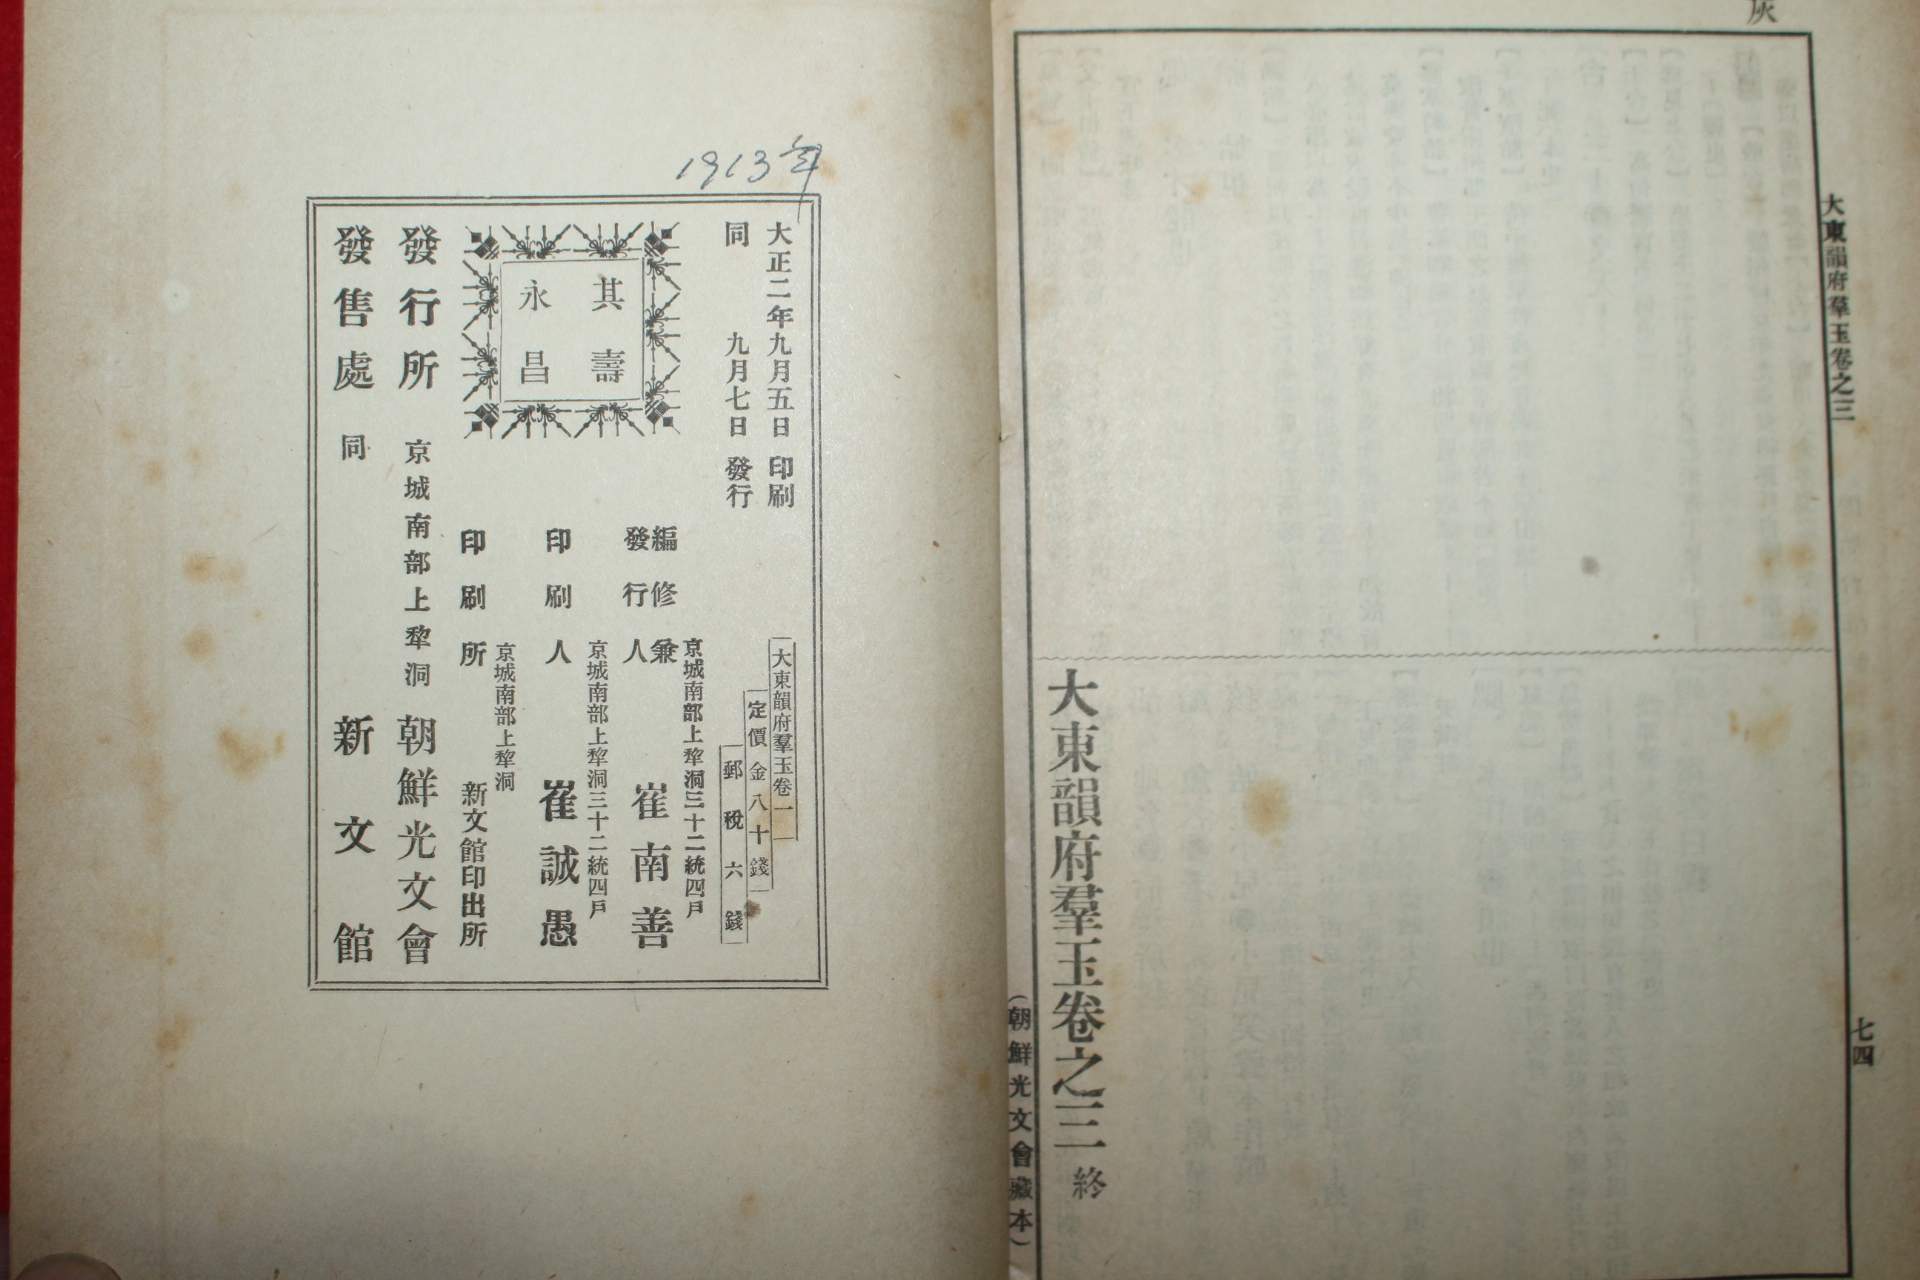 灰
大東韻府羣玉卷之三
七四
大東韻府羣玉卷之三 終
(朝鮮光文會藏本)
1913年
大正二年九月五日 印刷
同 九月七日 發行
大東韻府羣玉卷一
定價金八十錢
郵稅六錢
其壽
永昌
京城南部上犂洞三十二統四戶
編修兼
發行人 崔南善
京城南部上犂洞三十二統四戶
印刷人 崔誠愚
京城南部上犂洞
印刷所 新文館印出所
發行所 京城南部上犂洞 朝鮮光文會
發售處 同 新文館